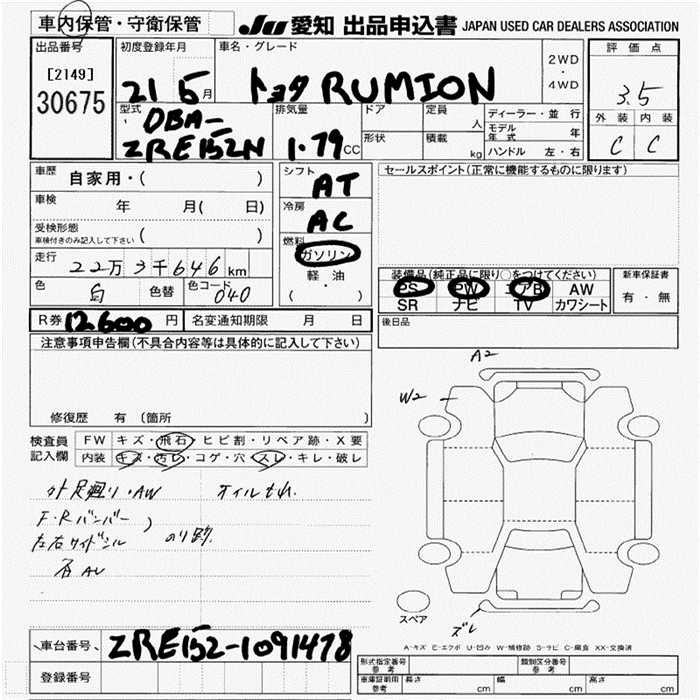 車内保管・守衛保管 JU 愛知 出品申込書 JAPAN USED CAR DEALERS ASSOCIATION
出品番号 初度登録年月 車名・グレード 2WD ・ 4WD 評価点
[2149]
30675
21 5月 トヨタ RUMION 3.5
型式 排気量 ドア 定員 人 ディーラー・並行 外装 内装
DBA- モデル年式 年
ZRE152N 1.79 CC 形状 積載 kg ハンドル 左・右 C C
車歴 自家用・( ) シフト AT セールスポイント(正常に機能するものに限ります)
車検 年 月( 日) 冷房 AC
受検形態 ( )
車検付きのみ記入して下さい
燃料 ガソリン
走行 22万3千646km 軽・油
( ・ )
装備品(純正品に限り○をつけてください) 新車保証書
色 白 色替 色コード 040
PS PW エアB AW 有・無
SR ナビ TV カワシート
R券 12600円 名変通知期限 月 日 後日品
注意事項申告欄(不具合内容等は具体的に記入して下さい)
A2
W2
修復歴 有 (箇所 )
検査員記入欄 FW キズ・飛石・ヒビ割・リペア跡・X要
内装 キズ・汚レ・コゲ・穴・スレ・キレ・破レ
外足廻り・AW オイルもれ
F・Rバンパー
左右サイドシル
スペア
ズレ
A-キズ E-エクボ U-凹み W-補修跡 S-サビ C-腐食 XX-交換済
車台番号 ZRE152-1091478
登録番号
型式指定番号 参考 類別区分番号 参考
車庫証明用 参考 長さ cm 幅 cm 高さ cm